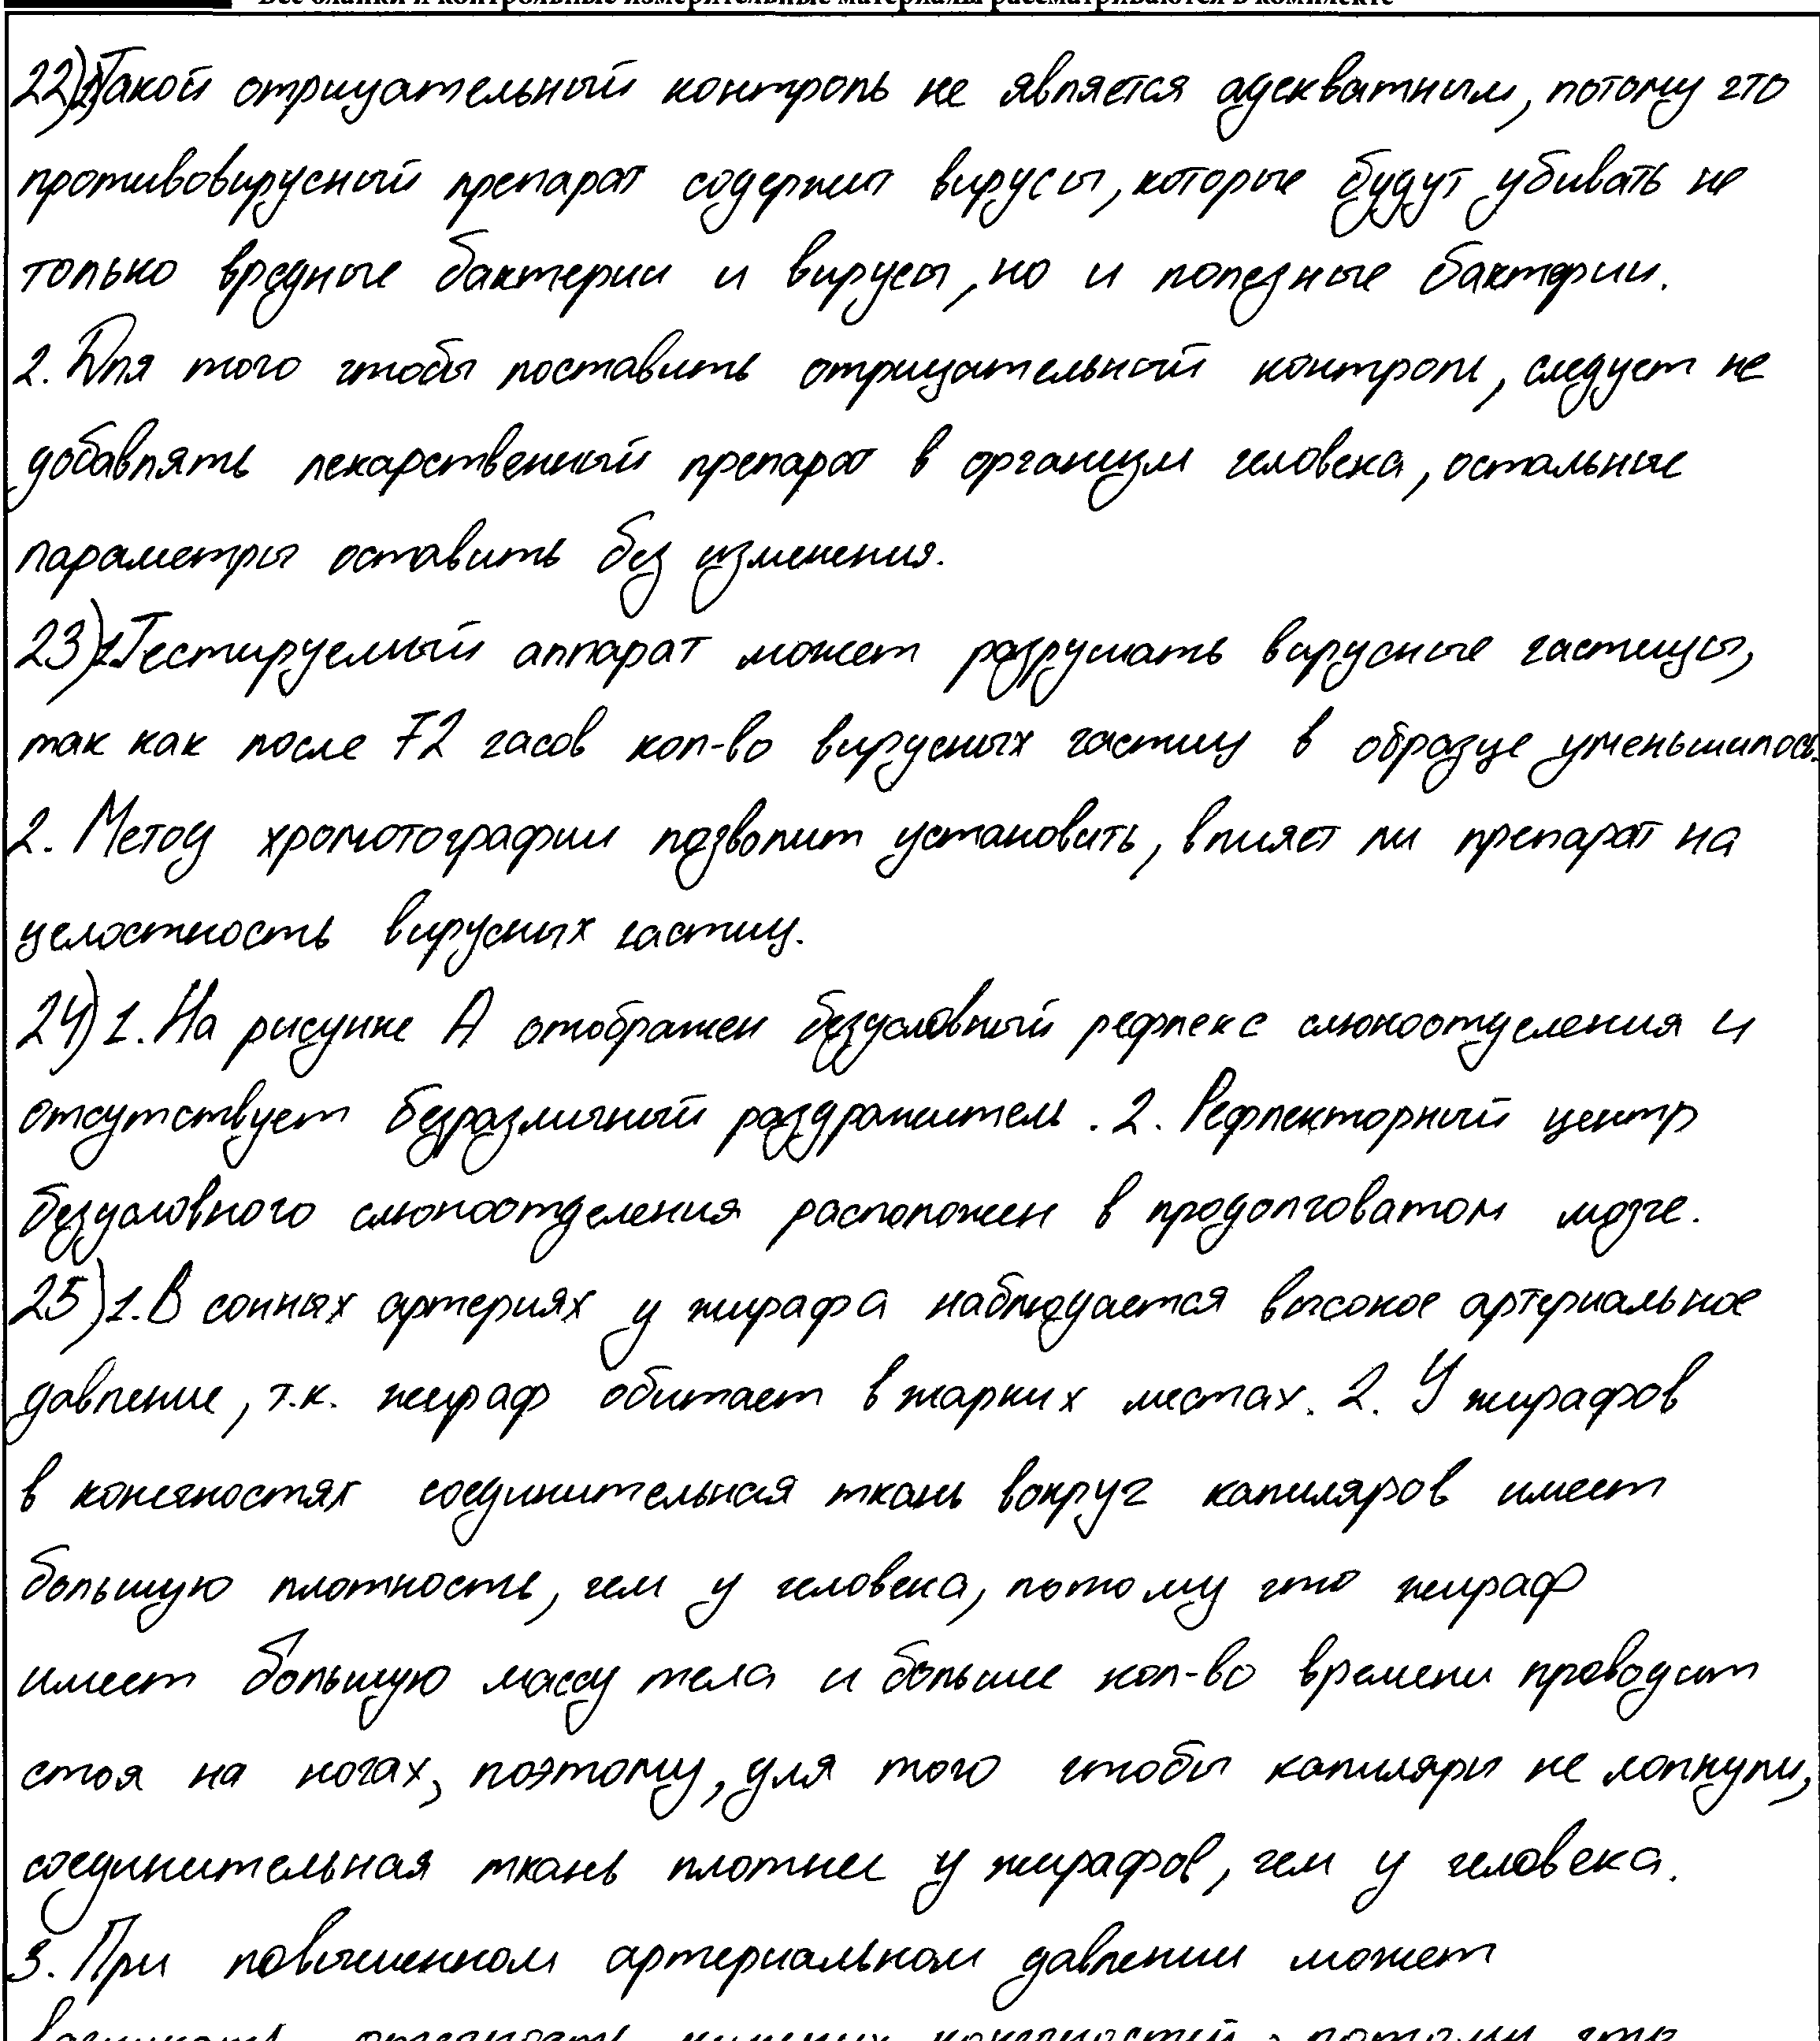 Все бланки и контрольные измерительные материалы рассматриваются в комплекте
22)1)Такой отрицательный контроль не является адекватным, потому что
противовирусный препарат содержит вирусы, которые будут убивать не
только вредные бактерии и вирусы, но и полезные бактерии.
2. Для того чтобы поставить отрицательный контроль, следует не
добавлять лекарственный препарат в организм человека, остальные
параметры оставить без изменения.
23)1.Тестируемый аппарат может разрушать вирусные частицы,
так как после 72 часов кол-во вирусных частиц в образце уменьшилось.
2. Метод хромотографии позволит установить, влияет ли препарат на
целостность вирусных частиц.
24)1. На рисунке А отображен безусловный рефлекс слюноотделения и
отсутствует безразличный раздражитель. 2. Рефлекторный центр
безусловного слюноотделения расположен в продолговатом мозге.
25)1. В сонных артериях у жирафа наблюдается высокое артериальное
давление, т.к. жираф обитает в жарких местах. 2. У жирафов
в конечностях соединительная ткань вокруг капиляров имеет
большую плотность, чем у человека, потому что жираф
имеет большую массу тела и больше кол-во времени проводит
стоя на ногах, поэтому, для того чтобы капиляры не лопнули,
соединительная ткань плотнее у жирафов, чем у человека.
3. При повышенном артериальном давлении может
конечностей, потому что